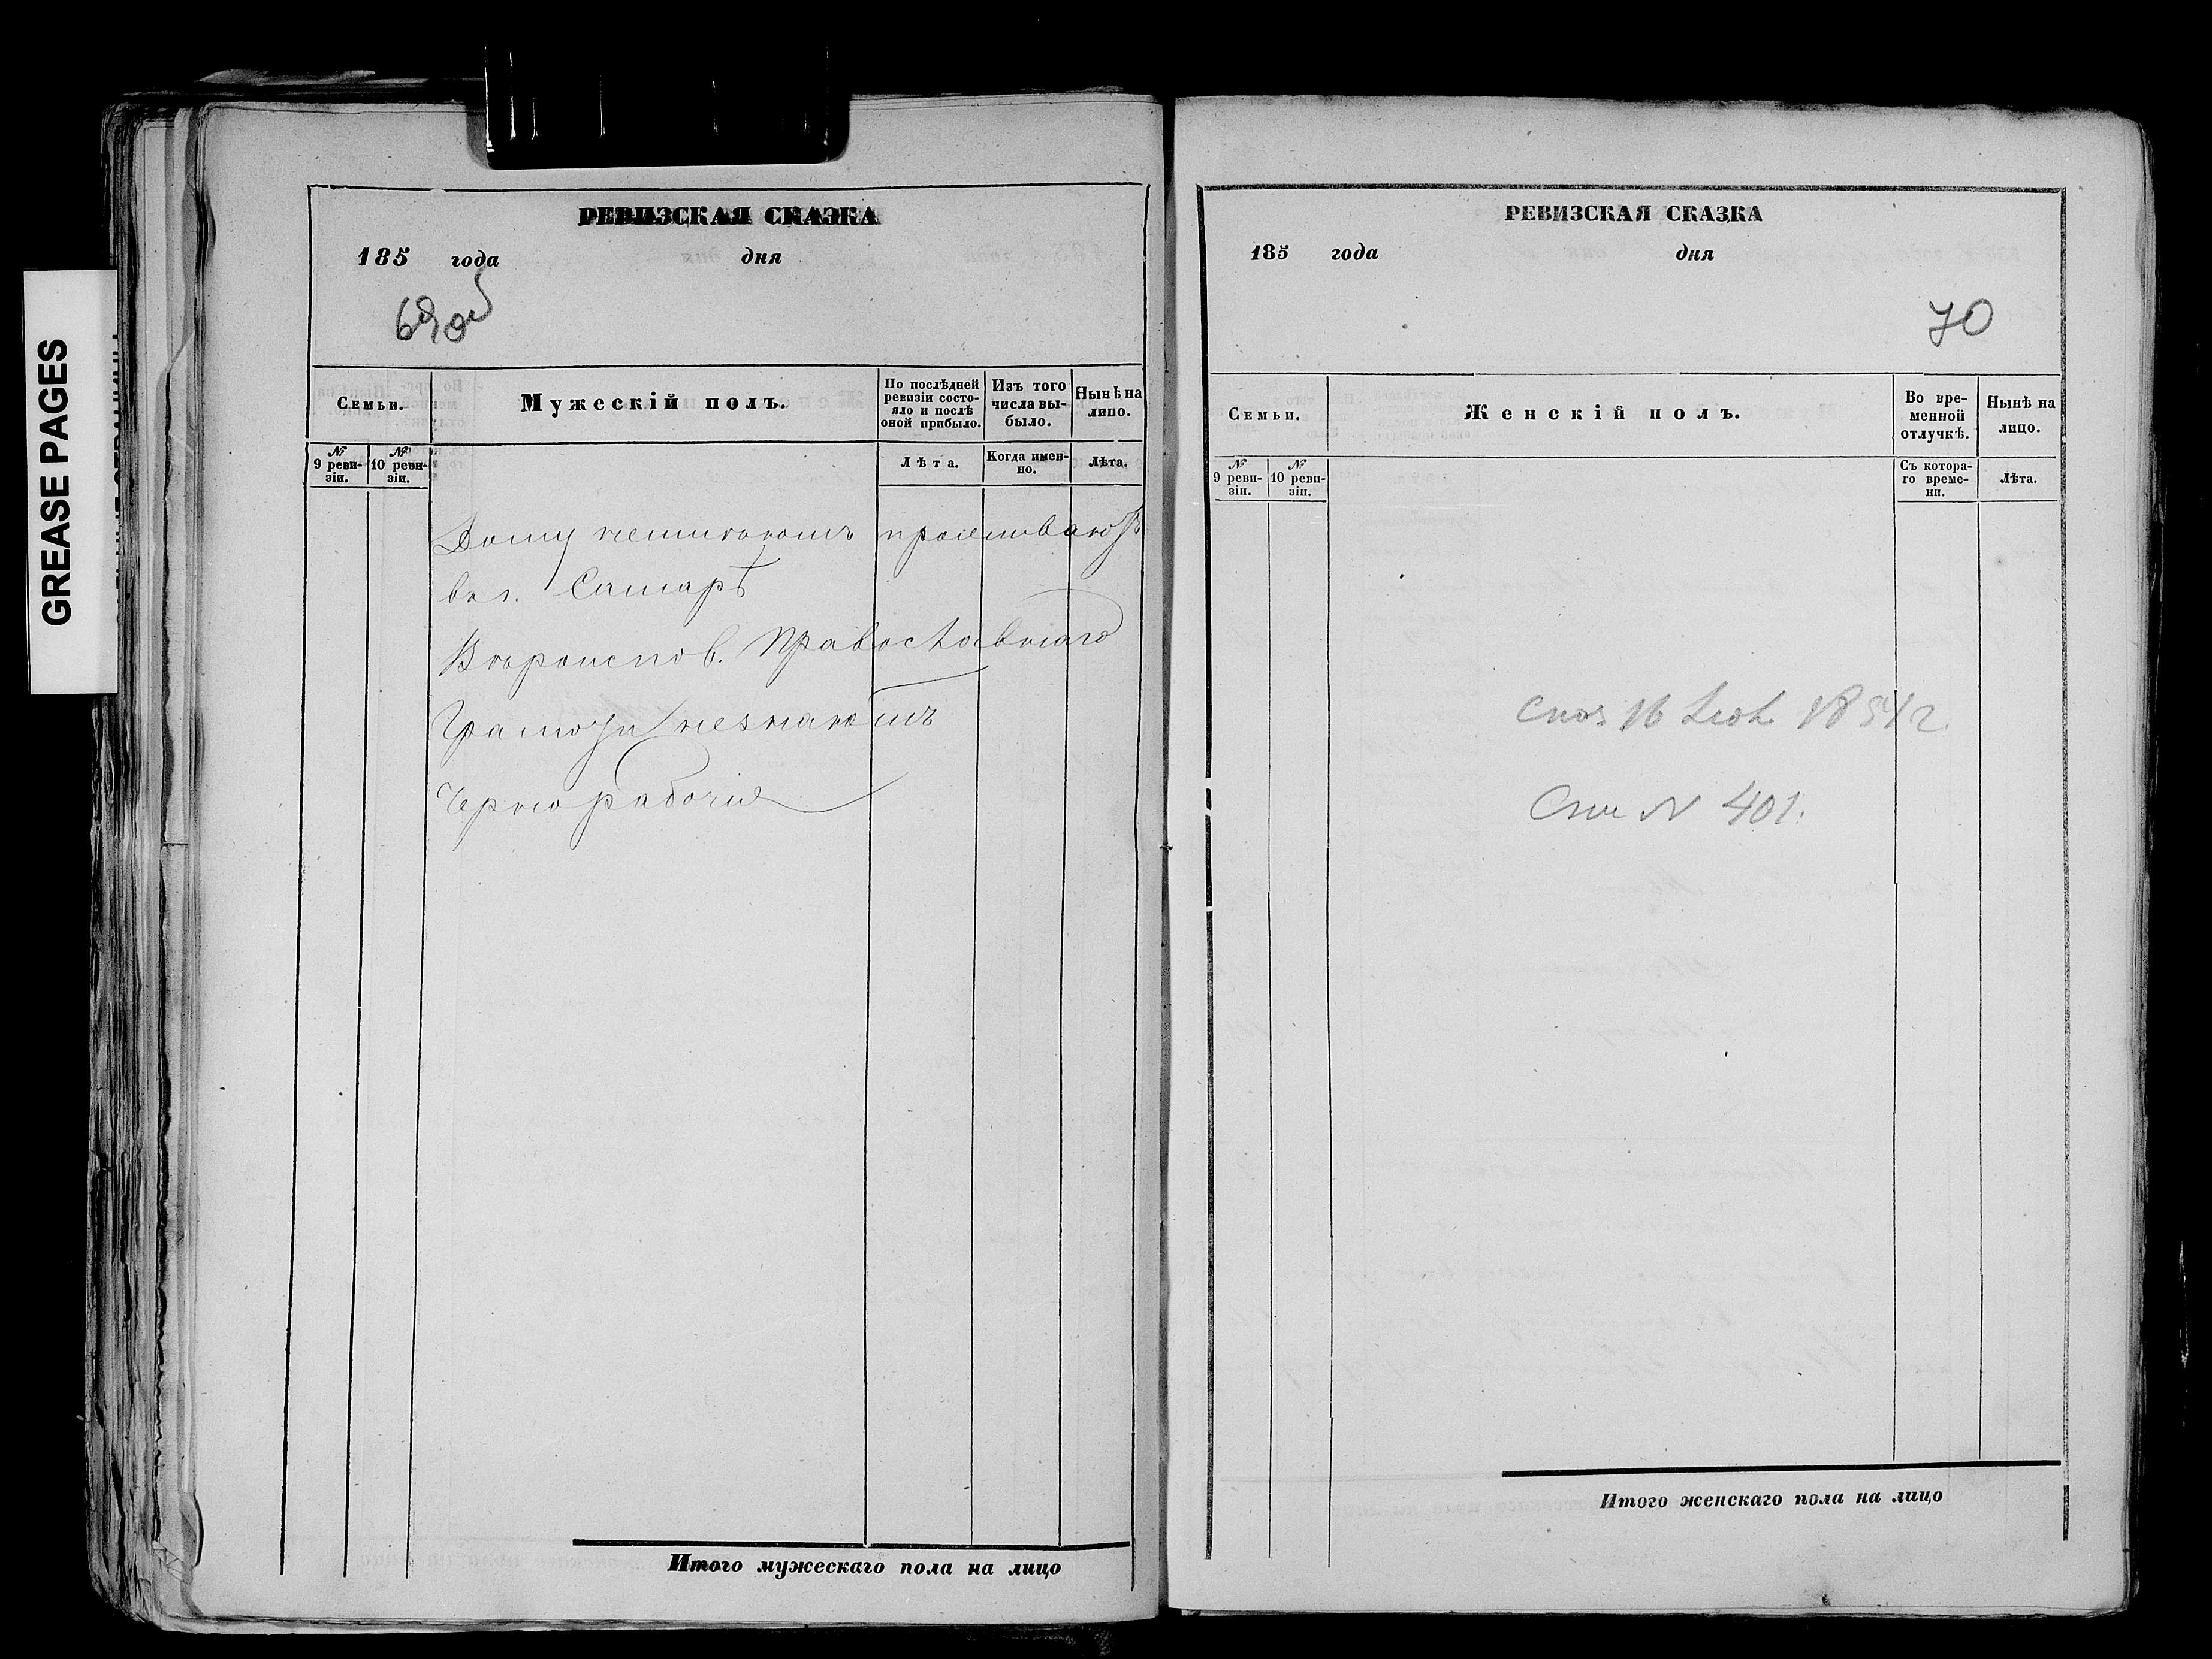 GREASE PAGES
РЕВИЗСКАЯ СКАЗКА
185 года дня
69об
Семьи.
Мужескій полъ.
По послѣдней ревизіи состояло и послѣ оной прибыло.
Изъ того числа выбыло.
Нынѣ на лицо.
№ 9 ревизіи.
№ 10 ревизіи.
Лѣта.
Когда именно.
Лѣта.
Дому неимеютъ проживаютъ
въ г. Самарѣ
Вѣроиспов. Православнаго
Грамоты незнаютъ
Чернорабочіе
Итого мужескаго пола на лицо
РЕВИЗСКАЯ СКАЗКА
185 года дня
70
Семьи.
Женскій полъ.
Во временной отлучкѣ.
Нынѣ на лицо.
№ 9 ревизіи.
№ 10 ревизіи.
Съ котораго времени.
Лѣта.
16 185 г.
№ 401.
Итого женскаго пола на лицо